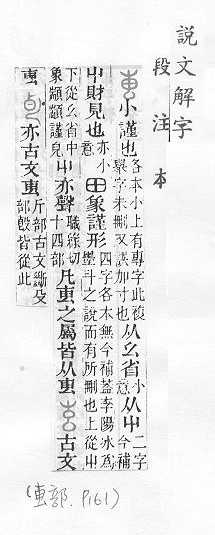 說文解字
段注本
叀小謹也各本小上有專字此複舉字未刪又誤加寸也从幺省小意从屮二字今補
屮財見也亦小意田象謹形四字各本無今補蓋李陽冰爲墨斗之說而有所刪也上從屮
下從幺省中象顓顓謹皃屮亦聲職緣切十四部凡叀之屬皆从叀古文
叀亦古文叀斤部古文斷及部皆從此
(叀部. P161)